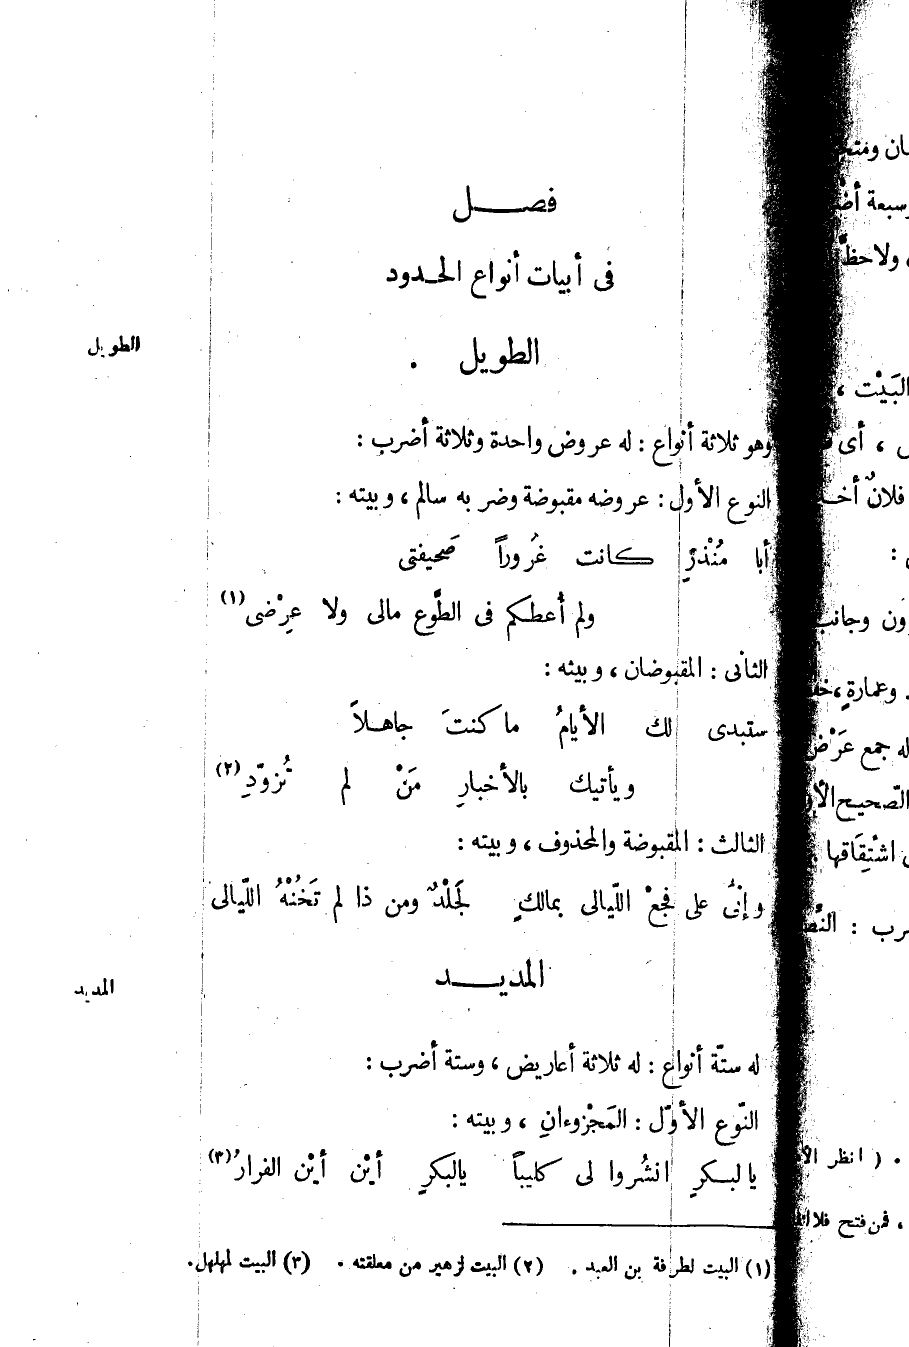 فصــل
فى أبيات أنواع الحـدود
الطويل
الطويل .
وهو ثلاثة أنواع : له عروض واحدة وثلاثة أضرب :
النوع الأول : عروضه مقبوضة وضربه سالم ، وبيته :
أبا مُنْذرٍ كانت غُروراً صَحيفتى
ولم أُعطكم فى الطَّوع مالى ولا عِرْضى (١)
الثانى : المقبوضان ، وبيته :
ستبدى لك الأيامُ ما كنتَ جاهـلاً
ويأتيك بالأخبارِ مَنْ لم تُزوّدِ (٢)
الثالث : المقبوضة والمحذوف ، وبيته :
وإنىُّ على فجعْ اللّيالى بمالكٍ لجَلْدٌ ومن ذا لم تَخُنْهُ اللّيالى
المديــد
المديد
له ستّة أنواع : له ثلاثة أعاريض ، وستة أضرب :
النّوع الأوّل : المَجْزوءانِ ، وبيته :
يا لبـكرٍ انشُروا لى كليباً يالبكرٍ أيْن أيْن الفرارُ (٣)
(١) البيت لطرفة بن العبد . (٢) البيت لزهير من معلقته . (٣) البيت لمهلهل .
ولاحظّ
البَيْت ،
، أى
فلانٌ
ون وجانب
وعمارةٍ ،
له جمع عَرْض
الصّحيح
اشْتِقَاقها
( انظر
، فمن فتح